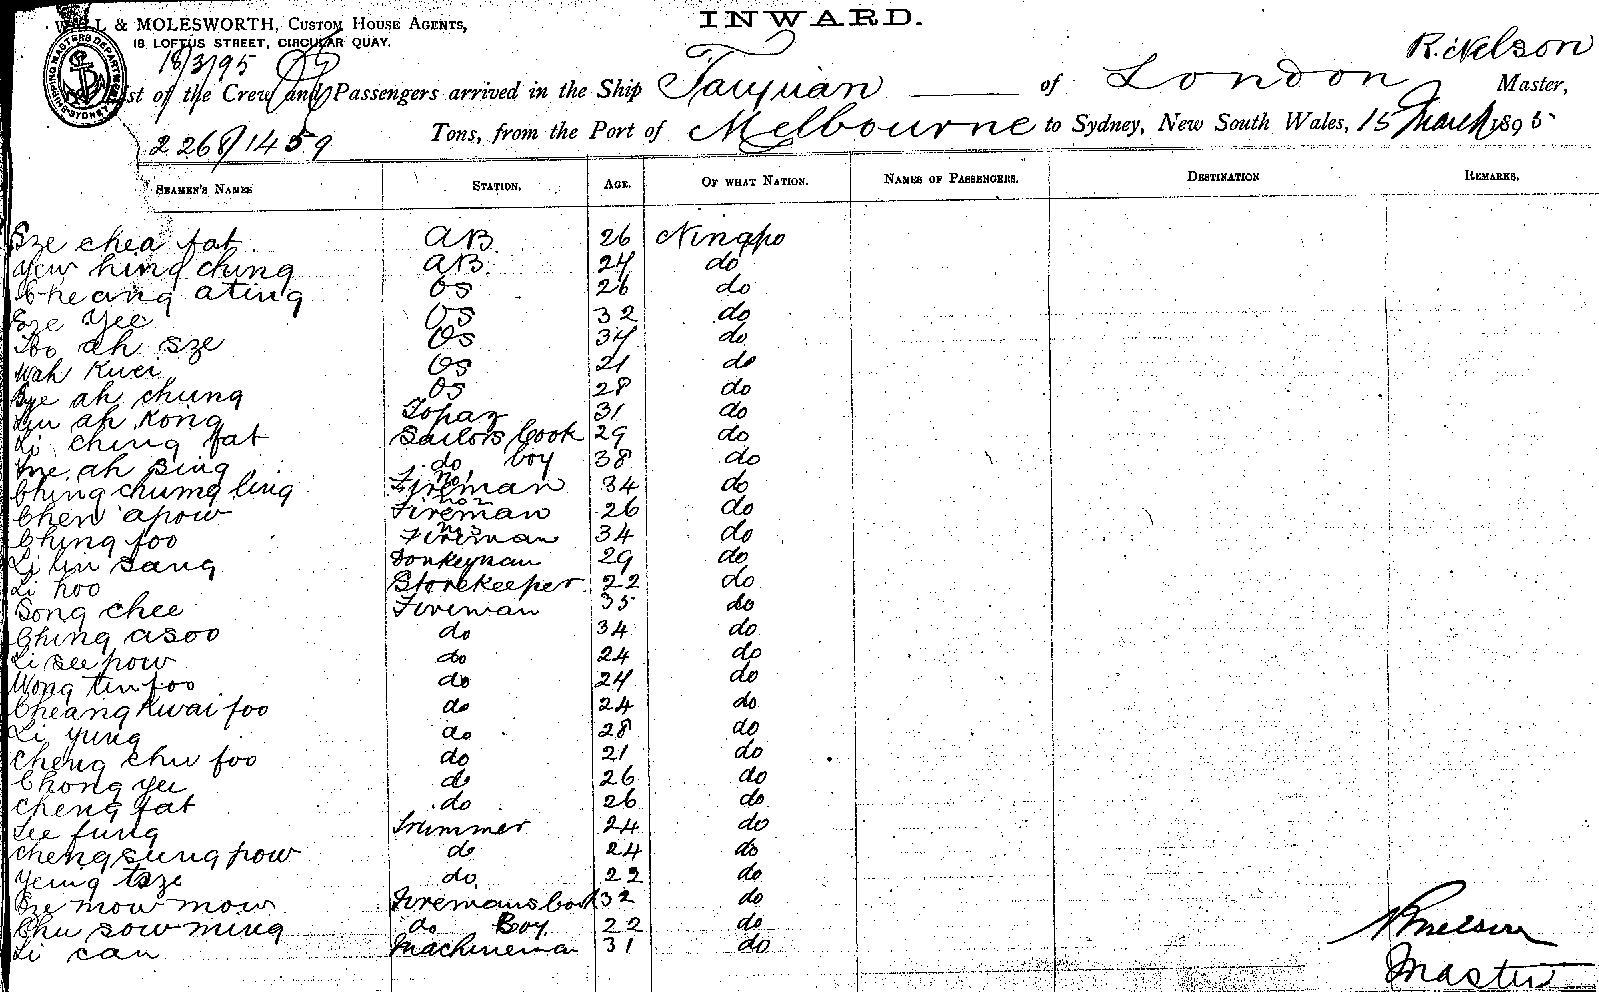 INWARD.
WALL & MOLESWORTH, CUSTOM HOUSE AGENTS,
18 LOFTUS STREET, CIRCULAR QUAY.
18/3/95
R. Nelson
List of the Crew and Passengers arrived in the Ship Taiyuan of London Master,
2268/1459 Tons, from the Port of Melbourne to Sydney, New South Wales, 15 March 1895
SEAMEN'S NAMES STATION. AGE. OF WHAT NATION. NAMES OF PASSENGERS. DESTINATION REMARKS.
Sze chea fat AB 26 Ningpo
Yew hing ching AB 24 do
Cheang ating OS 26 do
Sze Yee OS 32 do
Too ah sze OS 34 do
Wah Kuei OS 21 do
ah chung OS 28 do
ah Kong Topaz 31 do
Li ching fat Sailors Cook 29 do
ah Sing do boy 38 do
Ching chung ling Fireman 34 do
Chen apow Fireman 26 do
Ching foo Fireman 34 do
Li lin Sang Donkeyman 29 do
Li hoo Storekeeper 22 do
Song chee Fireman 35 do
Ching asoo do 34 do
Li see pow do 24 do
Wong tin foo do 24 do
Cheang Kwai foo do 24 do
Li yung do 28 do
Cheng chu foo do 21 do
Chong yu do 26 do
Cheng fat do 26 do
See fung Trimmer 24 do
Cheng sung pow do 24 do
Yeing tsze do 22 do
Sze mow mow Firemans Cook 32 do
Chu sow ming do Boy 22 do
Li can Machineman 31 do
RNelson
Master